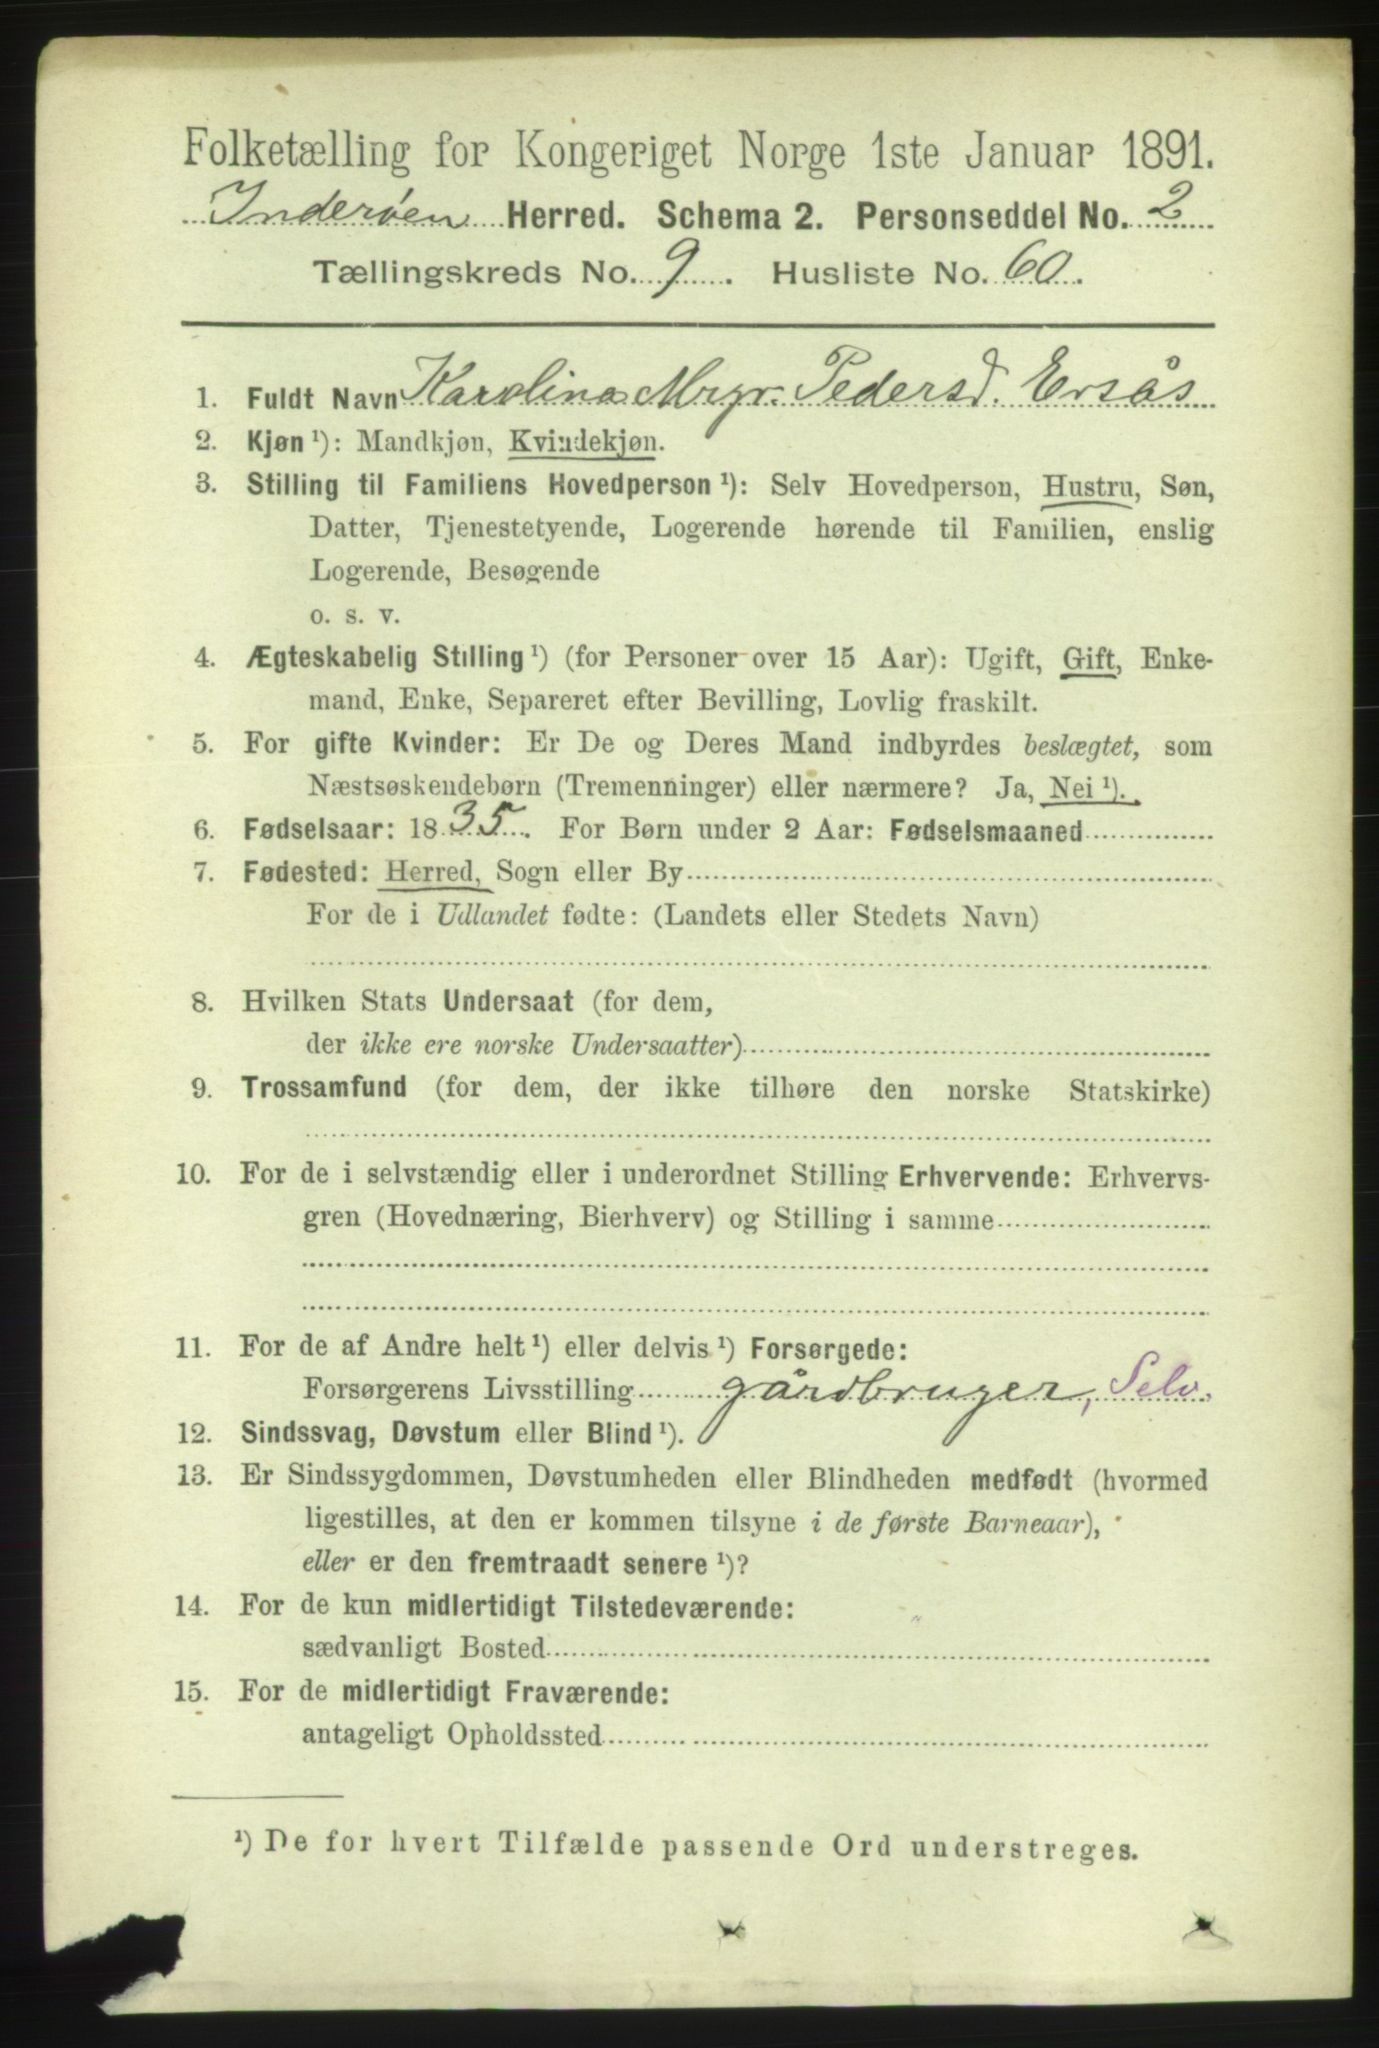 Folketælling for Kongeriget Norge 1ste Januar 1891.
Inderøen Herred. Schema 2. Personseddel No. 2
Tællingskreds No. 9. Husliste No. 60.
1. Fuldt Navn Karolina Mrgr. Pedersd. Ersås
2. Kjøn ¹): Mandkjøn, Kvindekjøn.
3. Stilling til Familiens Hovedperson ¹): Selv Hovedperson, Hustru, Søn,
Datter, Tjenestetyende, Logerende hørende til Familien, enslig
Logerende, Besøgende
o. s. v.
4. Ægteskabelig Stilling ¹) (for Personer over 15 Aar): Ugift, Gift, Enke-
mand, Enke, Separeret efter Bevilling, Lovlig fraskilt.
5. For gifte Kvinder: Er De og Deres Mand indbyrdes beslægtet, som
Næstsøskendebørn (Tremenninger) eller nærmere? Ja, Nei ¹).
6. Fødselsaar: 1835. For Børn under 2 Aar: Fødselsmaaned
7. Fødested: Herred, Sogn eller By
For de i Udlandet fødte: (Landets eller Stedets Navn)
8. Hvilken Stats Undersaat (for dem,
der ikke ere norske Undersaatter)
9. Trossamfund (for dem, der ikke tilhøre den norske Statskirke)
10. For de i selvstændig eller i underordnet Stilling Erhvervende: Erhvervs-
gren (Hovednæring, Bierhverv) og Stilling i samme
11. For de af Andre helt ¹) eller delvis ¹) Forsørgede:
Forsørgerens Livsstilling gårdbruger, Selv.
12. Sindssvag, Døvstum eller Blind ¹).
13. Er Sindssygdommen, Døvstumheden eller Blindheden medfødt (hvormed
ligestilles, at den er kommen tilsyne i de første Barneaar),
eller er den fremtraadt senere ¹)?
14. For de kun midlertidigt Tilstedeværende:
sædvanligt Bosted
15. For de midlertidigt Fraværende:
antageligt Opholdssted
¹) De for hvert Tilfælde passende Ord understreges.